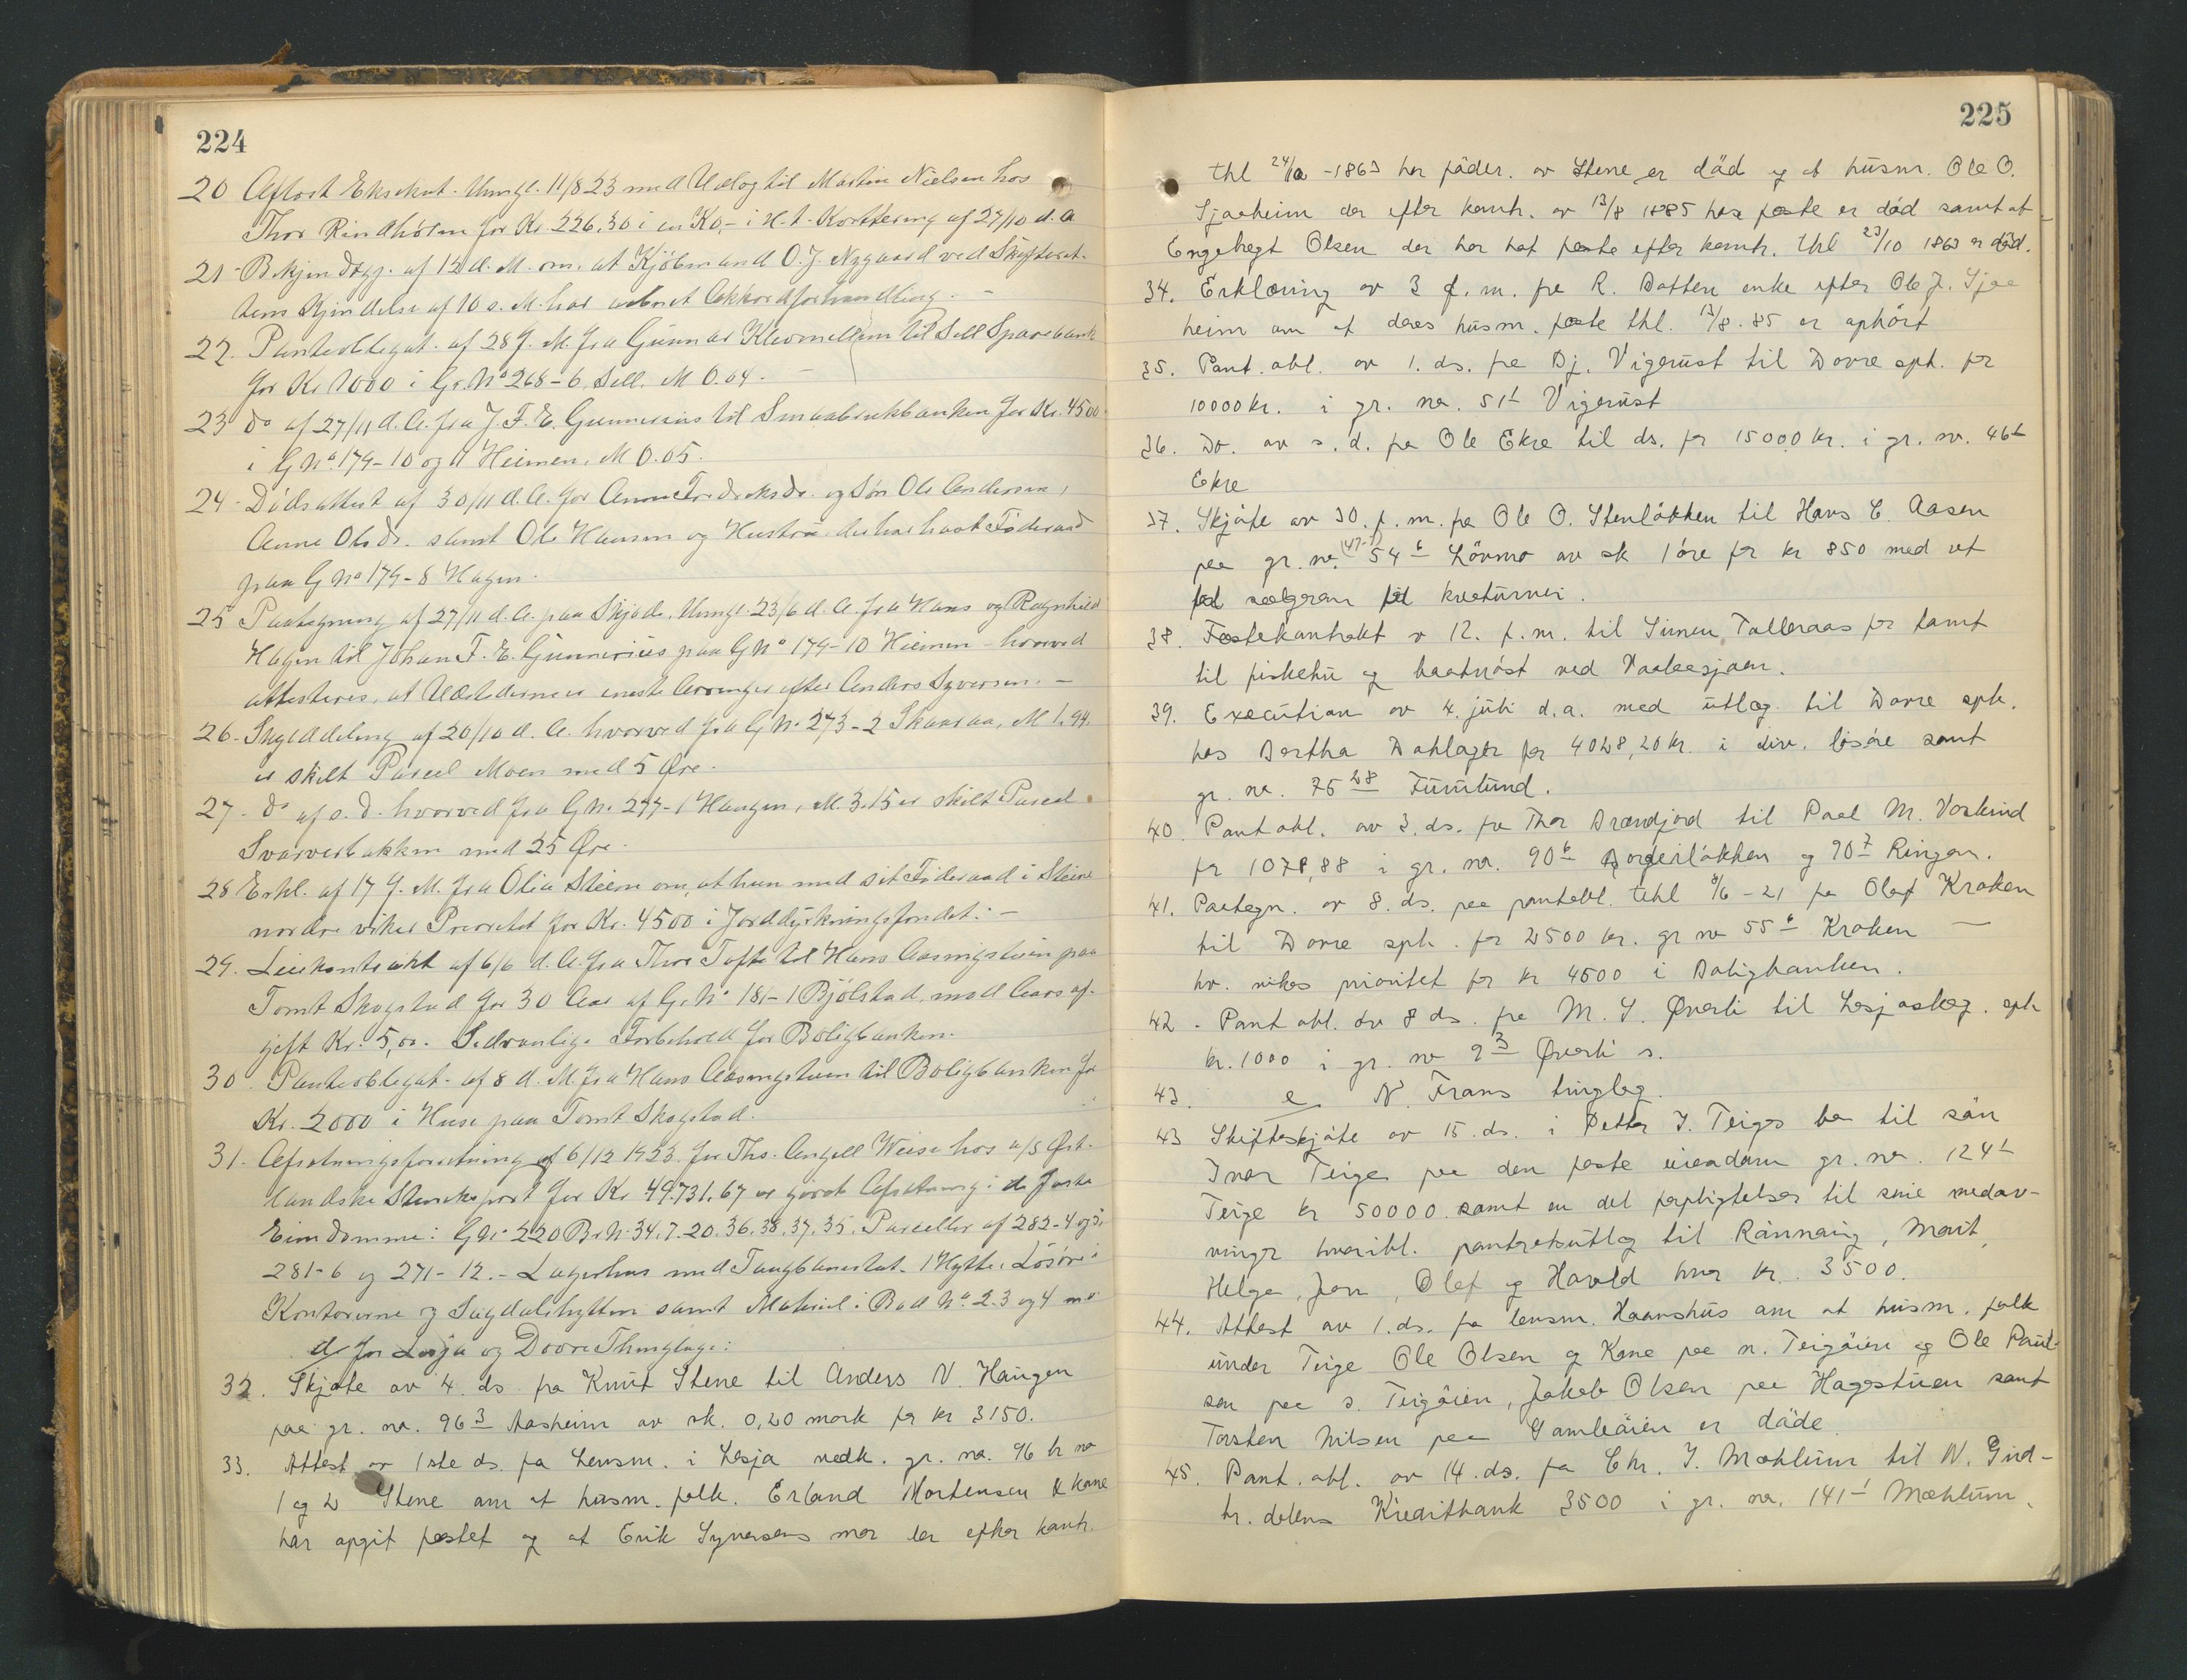 224
20 Aflæst Eksekut. thingl. 11/8 23 med Udlæg til Martin Nielsen hos
Thor Rindhølen for Kr. 226,30 i en Ko,- i H. t. Kvittering af 27/10 d. A
21 Bekjendtgj. af 12 d. M. om, at Kjöbmand O. J. Nygaard ved Skifteret-
tens Kjendelse af 10 s. M. har aabnet Akkordforhandling. -
22. Panteobligat. af 28 f. M. fra Gunnar Kleomellem til Sell Sparebank
for Kr 1000 i Gr. No 268-6, Sell. M 0.04. -
23 do af 27/11 d. A. fra J. F. E. Gunnerius til Smaabrukbanken for Kr. 4500
i G No 179-10 og 11 Heimen. M 0.05.
24- Dödsattest af 30/11 d. A. for Anne Fredriksdr. og Sön Ole Andersen,
Anne Olsdr. samt Ole Hansen og Hustru der har havt Föderaad
paa G No 179-8 Hagen.
25 Paategning af 27/11 d. A. paa Skjöde, thingl. 23/6 d. A. fra Hans og Ragnhild
Hagen til Johan F. E. Gunnerius paa G No 179-10 Heimen - hvorved
attesteres, at Udstederne er eneste Arvinger efter Anders Syversen. -
26- Skylddeling af 20/10 d. A. hvorved fra G No 273-2 Skaaraa, M 1.94.
er skilt Parcel Moen med 5 Øre.
27- do af s. D. hvorved fra G No 277-1 Haugen, M. 3.15 er skilt Parcel
Svarverbakken med 25 Øre.
28 Erkl. af 17 f. M. fra Olia Steen om, at hun med sit Föderaad i Steine
nordre viker Prioritet for Kr. 4500 i Jorddyrkningsfondet. -
29. Leiekontrakt af 6/6 d. A. fra Thor Tofte til Hans Aasmgstuen paa
Tomt Skogstad for 30 Aar af G. No 181-1 Bjölstad, mod Aarsaf-
gift Kr. 5,00. Sedvanlige Forbehold for Boligbanken.
30. Panteobligat. af 8 d. M. fra Hans Aasmgstuen til Boligbanken for
Kr. 2000 i Huse paa Tomt Skogstad.
31. Afsætningsforretning af 6/12 1923. for Ths. Angell Weise hos a/s Øst-
landske Stenexport for Kr 49.731,67 er gjort Afsætning i de faste
Eiendomme: G No 220 Br N. 34. 7. 20. 36. 38. 37. 35. Parceller af 282-4 og 5
281-6 og 271-12. - Lagerhus med Taugbanestat. 1 Hytte, Lösöre i
Kontorerne og Sagdalshytten samt Materiel i Bad No 2. 3 og 4 m v
d/ for Lesja og Dovre Thinglage:
32. Skjöte av 4. ds. fra Knut Stene til Anders N. Haugen
paa gr. nr. 96 3 Aasheim av sk. 0,20 mark for kr 3150.
33. Attest av 1ste ds. fra Lensm. i Lesja vedk. gr. nr. 96 br nr
1 og 2 Stene om at husm. folk. Erland Mortensen & kone
har opgit festet og at Erik Syversens mor der efter kontr.
225
thl 24/10 -1863 har föder. av Stene er död og at husm. Ole O.
Sjaaheim der efter kontr. av 13/8 1885 har feste er död samt at
Engebregt Olsen der har hat feste efter kontr. thl 23/10 1863 er död.
34. Erklæring av 3 f. m. fra R. Botten enke efter Ole J. Sjaa
heim om at deres husm. feste thl. 13/8. 85 er ophört
35. Pant. obl. av 1. ds. fra Bj. Vigerust til Dovre spb. for
10000 kr. i gr. nr. 51 1 Vigerust
36. Do. av s. d. fra Ole Ekre til ds. for 15000 kr. i gr. nr. 46 1
Ekre
37. Skjöte av 30. f. m. fra Ole O. Stenlökken til Hans C. Aasen
paa gr. nr. (47-1) 54 6 Lövmo av sk 1 öre for kr 850 med ret
for sælgeren til kreaturvei.
38. Festekontrakt av 12. f. m. til Simen Talleraas for tomt
til fiskebu og baatnöst ved Vaalaasjöen.
39. Execution av 4. juli d. a. med utlæg til Dovre spb.
hos Bertha Dahlager for 4028,20 kr. i div. lösöre samt
gr. nr. 75 28 Furulund.
40. Pant obl. av 3. ds. fra Thor Brændjord til Paal M. Vorkind
for 1078,88 i gr. nr. 90 6 Borgerlökken og 90 7 Ringen.
41. Paategn. av 8. ds. paa pantobl. tthl 8/6 -21 fra Olaf Kraken
til Dovre spb. for 2500 kr. gr nr 55 6 Kraken —
hv. vikes prioritet for kr 4500 i Boligbanken.
42. Pant obl. av 8 ds. fra M. J. Øverli til Lesjaskog. spb
kr. 1000 i gr. nr 9 3 Øverli s.
43. e N. Frons tinglag.
43 Skifteskjöte av 15. ds. i Petter J. Teiges bo til sön
Ivar Teige paa den faste eiendom gr. nr. 124 1
Teige kr 50000 samt en del forpligtelser til sine medar-
vinger hvoribl. pantretsutlæg til Rönnaug, Marit,
Helga, Jon, Olaf og Harald hver kr. 3500.
44. Attest av 1. ds. fra lensm. Haanshus om at husm. folk
under Teige Ole Olsen og Kone paa n. Teigöien og Ole Paul-
sen paa s. Teigöien, Jakob Olsen paa Hagestuen samt
Torsten Nilsen paa Gamleöien er döde.
45. Pant. obl. av 14. ds. fra Chr. J. Mæhlum til N. Gud-
br. dalens Kreditbank 3500 i gr. nr. 141 1 Mæhlum.